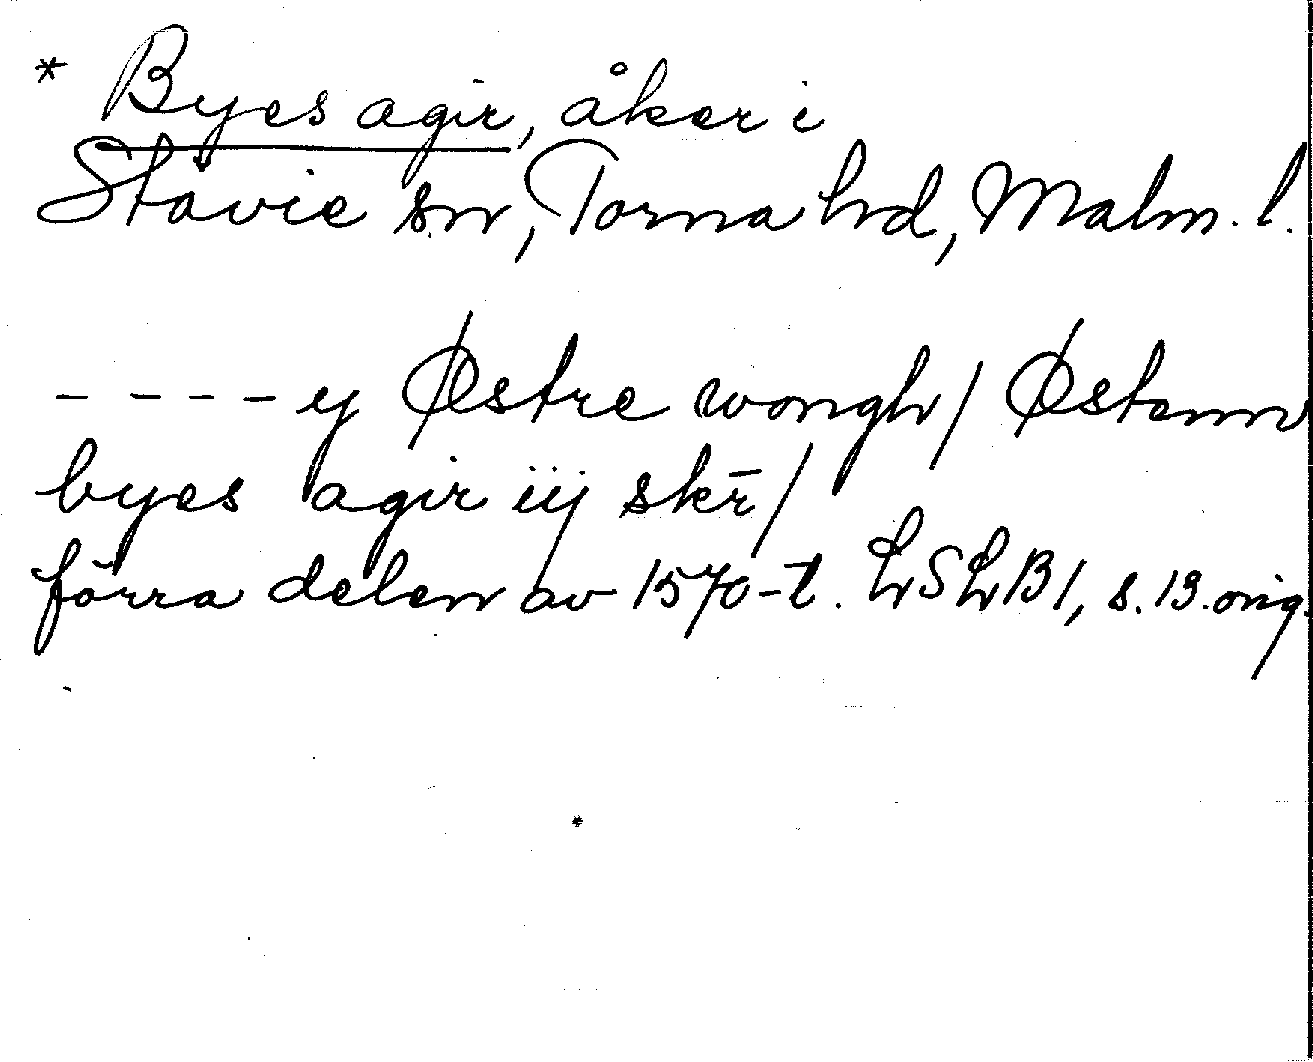 * Byes agir, åker i
Stävie sn, Torna hd, Malm. l.
- - - - y Østre wongh / Østenn
byes agir iij skr̄ /
förra delen av 1570-t. LSLB1, s. 13. orig.